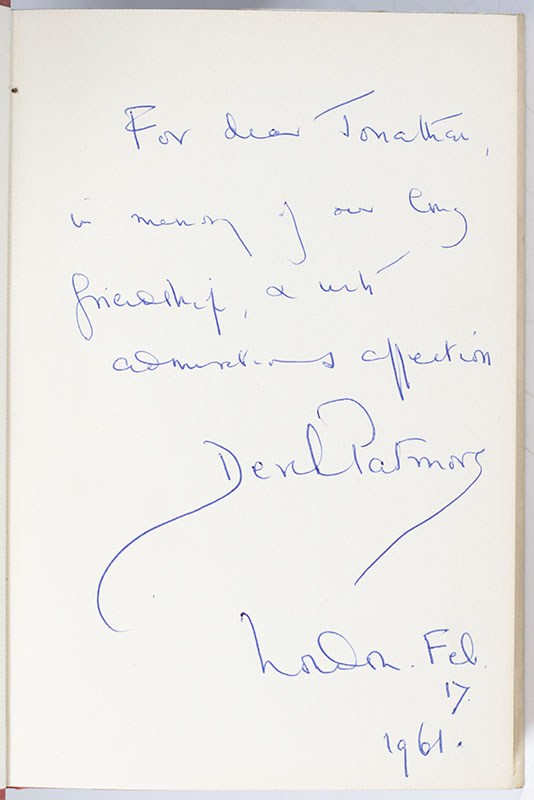 For dear Jonathan,
in memory of our long
friendship, & with
admirations affection
Derek Patmore
London. Feb.
17.
1961.